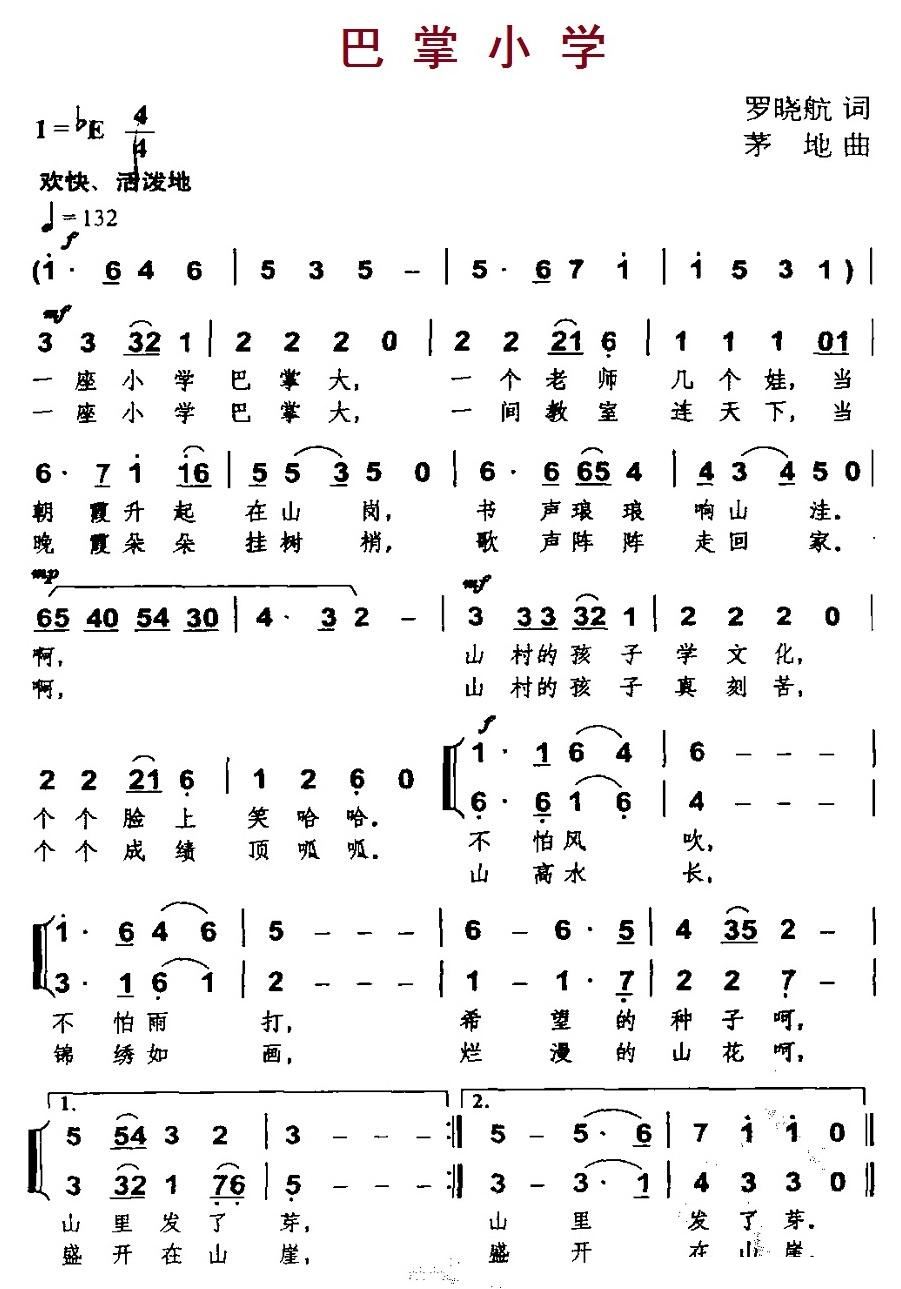 巴掌小学
罗晓航 词
1=♭E 4/4
茅 地 曲
欢快、活泼地
♩=132
f
(1· 6 4 6 | 5 3 5 – | 5· 6 7 1 | 1 5 3 1) |
mf
3 3 32 1 | 2 2 2 0 | 2 2 21 6 | 1 1 1 01 |
一座小学巴掌大, 一个老师几个娃,当
一座小学巴掌大, 一间教室连天下,当
6· 7 1 16 | 5 5 3 5 0 | 6· 6 65 4 | 4 3 4 5 0 |
朝霞升起在山岗, 书声琅琅响山洼。
晚霞朵朵挂树梢, 歌声阵阵走回家.
mp mf
65 40 54 30 | 4· 3 2 – | 3 33 32 1 | 2 2 2 0 |
啊, 山村的孩子学文化,
啊, 山村的孩子真刻苦,
f
1· 1 6 4 | 6 – – – |
2 2 21 6 | 1 2 6 0
6· 6 1 6 | 4 – – – |
个个脸上笑哈哈. 不怕风吹,
个个成绩顶呱呱. 山高水长,
1· 6 4 6 | 5 – – – | 6 – 6· 5 | 4 35 2 – |
3· 1 6 1 | 2 – – – | 1 – 1· 7 | 2 2 7 – |
不怕雨打, 希望的种子呵,
锦绣如画, 烂漫的山花呵,
1. 2.
5 54 3 2 | 3 – – – :‖ 5 – 5· 6 | 7 1 1 0 ‖
3 32 1 76 | 5 – – – :‖ 3 – 3· 1 | 4 3 3 0 ‖
山里发了芽, 山里发了芽.
盛开在山崖, 盛开在山崖.